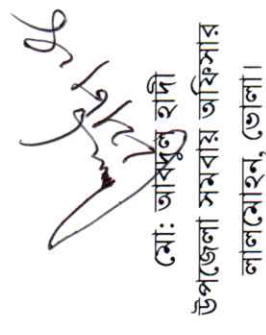 মো: আবদুল হাদী
উপজেলা সমবায় অফিসার
লালমোহন, ভোলা।